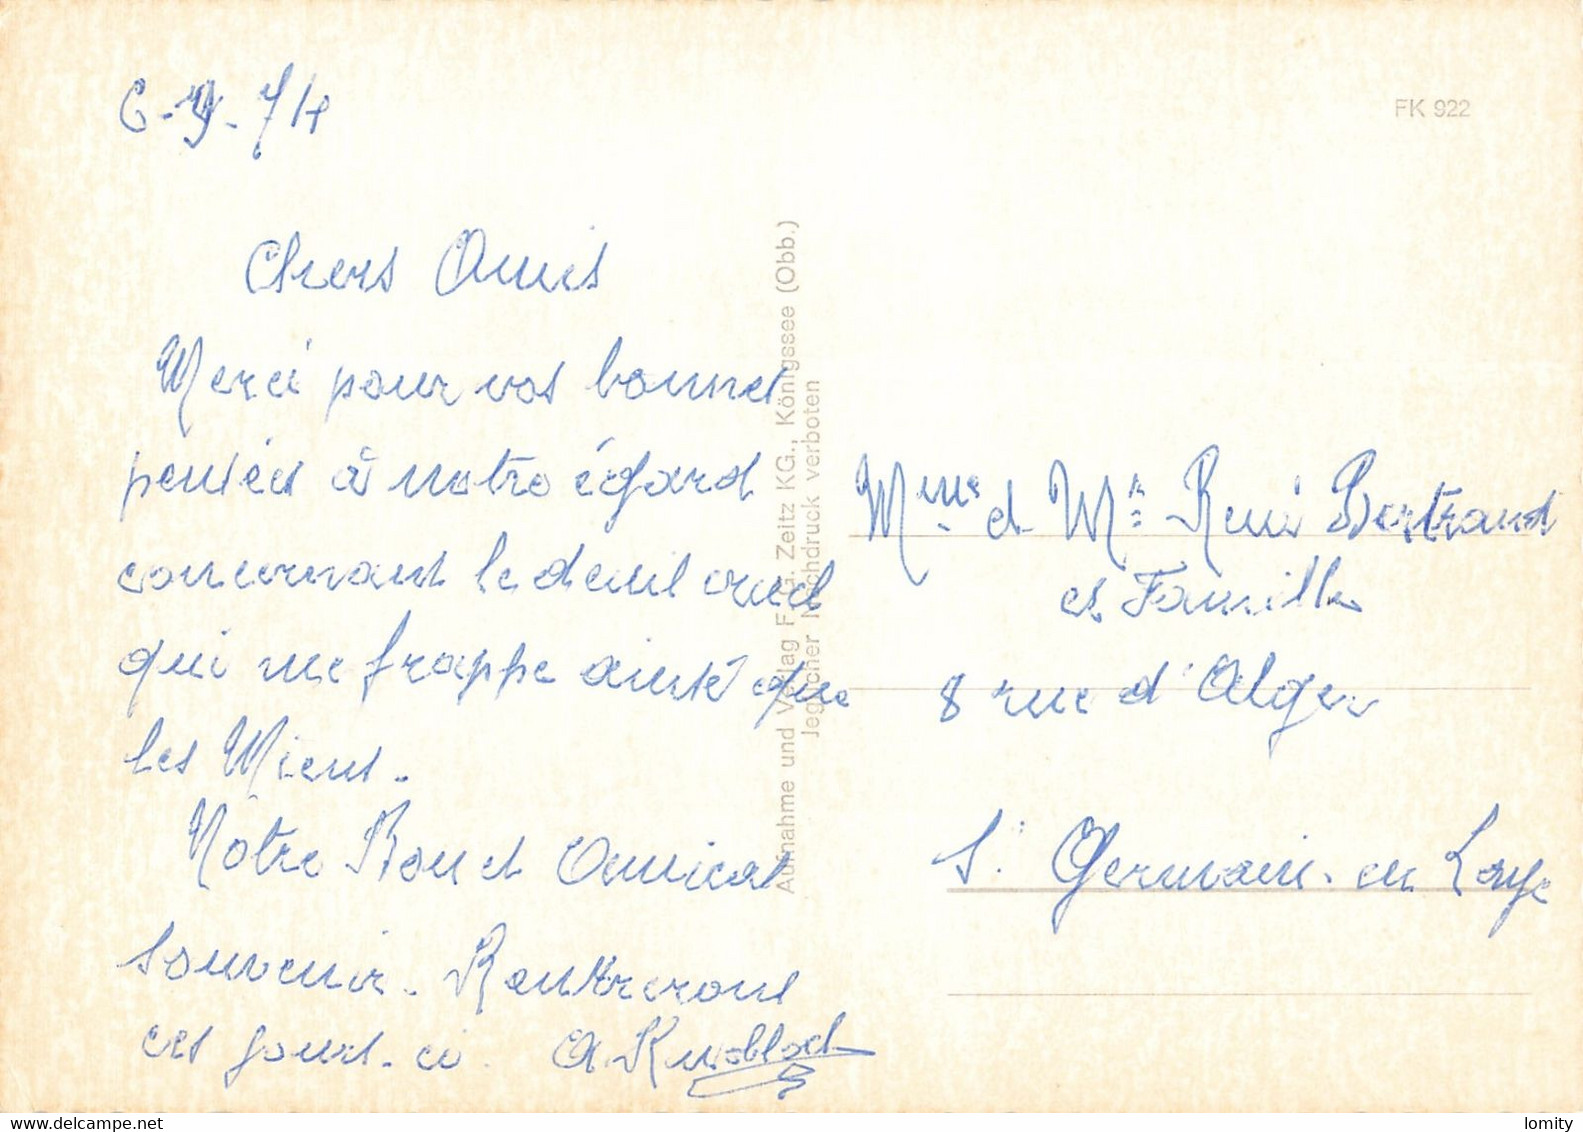 6-9-74
FK 922
Chers Amis
Merci pour vos bonnes
pensées à notre égard
concernant le deuil cruel
qui me frappe ainsi que
les Miens.
Nôtre Bon et Amical
souvenir. Rentrerons
ces jours-ci. A. Knobloch
Mme et Mr René Bertrand
et Famille
8 rue d'Alger
St Germain-en Laye
Aufnahme und Verlag F. G. Zeitz KG., Königssee (Obb.)
Jeglicher Nachdruck verboten
www.delcampe.net
lomity